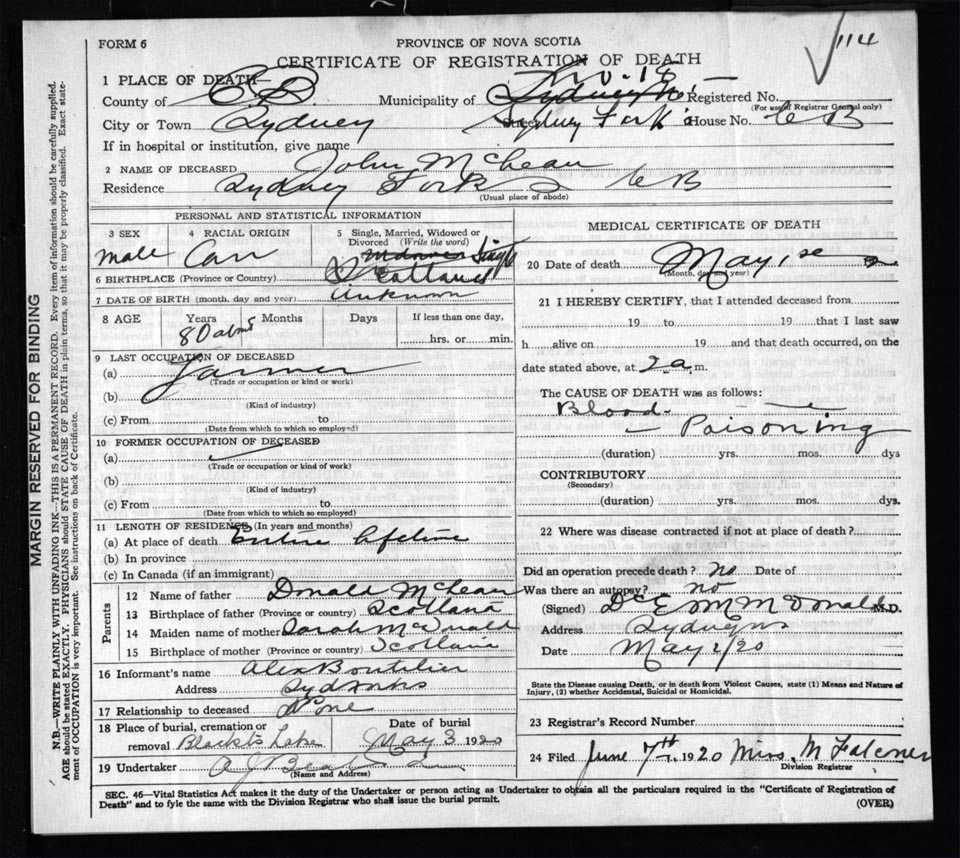 114
FORM 6
PROVINCE OF NOVA SCOTIA
CERTIFICATE OF REGISTRATION OF DEATH
1 PLACE OF DEATH—
County of C B Municipality of Registered No.
(For use of Registrar General only)
City or Town Sydney Street Sydney Fork's House No. C B
If in hospital or institution, give name
2 NAME OF DECEASED John McLean
Residence Sydney Forks C B
(Usual place of abode)
PERSONAL AND STATISTICAL INFORMATION
3 SEX 4 RACIAL ORIGIN 5 Single, Married, Widowed or Divorced (Write the word)
Male Can Single
6 BIRTHPLACE (Province or Country) Scotland
7 DATE OF BIRTH (month, day and year) Unknown
8 AGE Years Months Days If less than one day,
80 about hrs. or min.
9 LAST OCCUPATION OF DECEASED
(a) Farmer
(Trade or occupation or kind or work)
(b)
(Kind of industry)
(c) From to
(Date from which to which so employed)
10 FORMER OCCUPATION OF DECEASED
(a)
(Trade or occupation or kind of work)
(b)
(Kind of industry)
(c) From to
(Date from which to which so employed)
11 LENGTH OF RESIDENCE, (In years and months)
(a) At place of death Entire lifetime
(b) In province
(c) In Canada (if an immigrant)
Parents
12 Name of father Donald McLean
13 Birthplace of father (Province or country) Scotland
14 Maiden name of mother Sarah McDonald
15 Birthplace of mother (Province or country) Scotland
16 Informant's name Alex Boutilier
Address Syd Forks
17 Relationship to deceased None
18 Place of burial, cremation or removal Blacketts Lake Date of burial May 3 1920
19 Undertaker A J Beaton
(Name and Address)
MEDICAL CERTIFICATE OF DEATH
20 Date of death May 1st
(Month, day and year)
21 I HEREBY CERTIFY, that I attended deceased from
19 to 19 that I last saw
h alive on 19 and that death occurred, on the
date stated above, at 2 a. m.
The CAUSE OF DEATH was as follows:
Blood
Poisoning
(duration) yrs. mos. dys
CONTRIBUTORY
(Secondary)
(duration) yrs. mos. dys.
22 Where was disease contracted if not at place of death?
Did an operation precede death? no Date of
Was there an autopsy? no
(Signed) Dr E M McDonald M.D.
Address Sydney NS
Date May 2/20
State the Disease causing Death, or in death from Violent Causes, state (1) Means and Nature of
Injury, (2) whether Accidental, Suicidal or Homicidal.
23 Registrar's Record Number
24 Filed June 7th 1920 Miss. M Falconer
Division Registrar
SEC. 46—Vital Statistics Act makes it the duty of the Undertaker or person acting as Undertaker to obtain all the particulars required in the "Certificate of Registration of
Death" and to fyle the same with the Division Registrar who shall issue the burial permit.
(OVER)
MARGIN RESERVED FOR BINDING
N.B.—WRITE PLAINLY WITH UNFADING INK—THIS IS A PERMANENT RECORD. Every item of information should be carefully supplied.
AGE should be stated EXACTLY. PHYSICIANS should STATE CAUSE OF DEATH in plain terms, so that it may be properly classified. Exact state-
ment of OCCUPATION is very important. See instructions on back of Certificate.